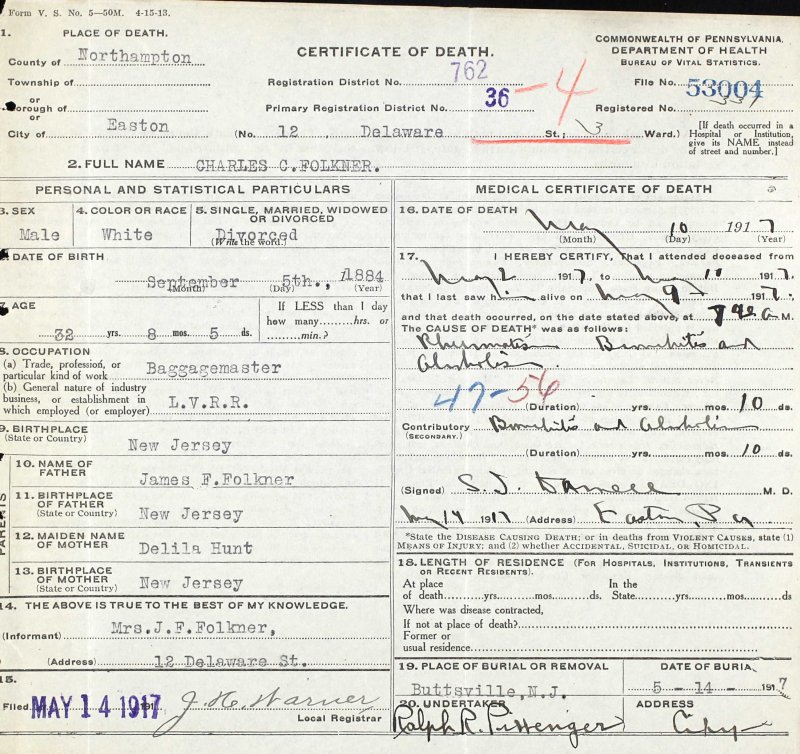 Form V. S. No. 5—50M. 4-15-13.
1. PLACE OF DEATH.
County of Northampton
Township of
or
Borough of
or
City of Easton
CERTIFICATE OF DEATH.
Registration District No. 762
Primary Registration District No. 36 -4
(No. 12 , Delaware St.; 3 Ward.)
COMMONWEALTH OF PENNSYLVANIA.
DEPARTMENT OF HEALTH
BUREAU OF VITAL STATISTICS.
File No. 53004
Registered No.
[If death occurred in a
Hospital or Institution,
give its NAME instead
of street and number.]
2. FULL NAME CHARLES C.FOLKNER.
PERSONAL AND STATISTICAL PARTICULARS
3. SEX
Male
4. COLOR OR RACE
White
5. SINGLE, MARRIED, WIDOWED
OR DIVORCED
Divorced
(Write the word.)
6. DATE OF BIRTH
September 5th., 1884
(Month) (Day) (Year)
7. AGE
32 yrs. 8 mos. 5 ds.
If LESS than 1 day
how many.........hrs. or
.........min.?
8. OCCUPATION
(a) Trade, profession, or
particular kind of work Baggagemaster
(b) General nature of industry
business, or establishment in
which employed (or employer) L.V.R.R.
9. BIRTHPLACE
(State or Country)
New Jersey
PARENTS
10. NAME OF
FATHER
James F.Folkner
11. BIRTHPLACE
OF FATHER
(State or Country)
New Jersey
12. MAIDEN NAME
OF MOTHER
Delila Hunt
13. BIRTHPLACE
OF MOTHER
(State or Country)
New Jersey
14. THE ABOVE IS TRUE TO THE BEST OF MY KNOWLEDGE.
(Informant) Mrs.J.F.Folkner,
(Address) 12 Delaware St.
15.
Filed MAY 14 1917 191 J. H. Warner
Local Registrar
MEDICAL CERTIFICATE OF DEATH
16. DATE OF DEATH
May 10 1917
(Month) (Day) (Year)
17. I HEREBY CERTIFY, That I attended deceased from
May 2 1917, to May 10 1917,
that I last saw him alive on May 9 1917.
and that death occurred, on the date stated above, at M.
The CAUSE OF DEATH* was as follows:
Bronchitis and
47-56
(Duration) yrs. mos. 10 ds.
Contributory Bronchitis and
(SECONDARY.)
(Duration) yrs. mos. 10 ds.
(Signed) M. D.
May 14 1917 (Address) Easton, Pa
*State the DISEASE CAUSING DEATH; or in deaths from VIOLENT CAUSES, state (1)
MEANS OF INJURY; and (2) whether ACCIDENTAL, SUICIDAL, OR HOMICIDAL.
18. LENGTH OF RESIDENCE (FOR HOSPITALS, INSTITUTIONS, TRANSIENTS
OR RECENT RESIDENTS).
At place
of death......yrs.......mos.......ds.
In the
State......yrs.......mos.......ds.
Where was disease contracted,
If not at place of death?
Former or
usual residence
19. PLACE OF BURIAL OR REMOVAL
Buttsville,N.J.
DATE OF BURIA
5 -14- 1917
20. UNDERTAKER
Ralph R. Pittenger
ADDRESS
City